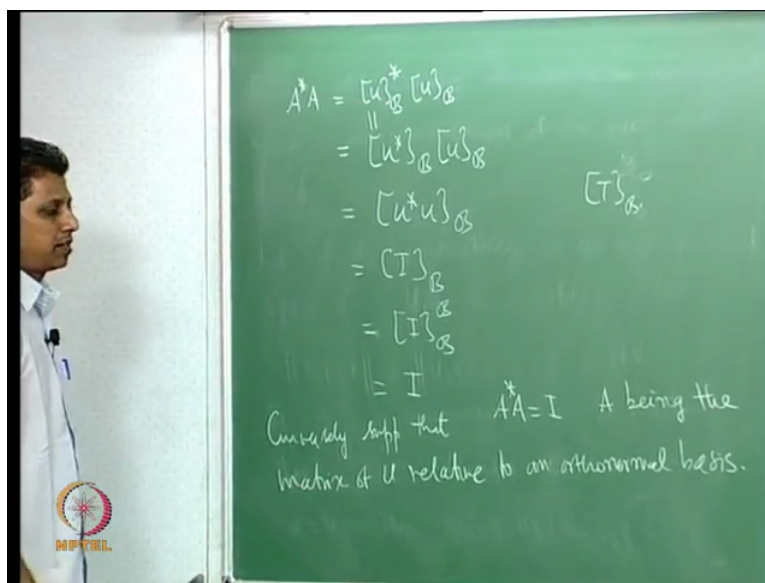 A*A = [u]*_B [u]_B
||
= [u*]_B [u]_B
= [u*u]_B
[T]_B.
= [I]_B
= [I]_B^B
= I
Conversely supp that A*A = I A being the
matrix of U relative to an orthonormal basis.
NPTEL